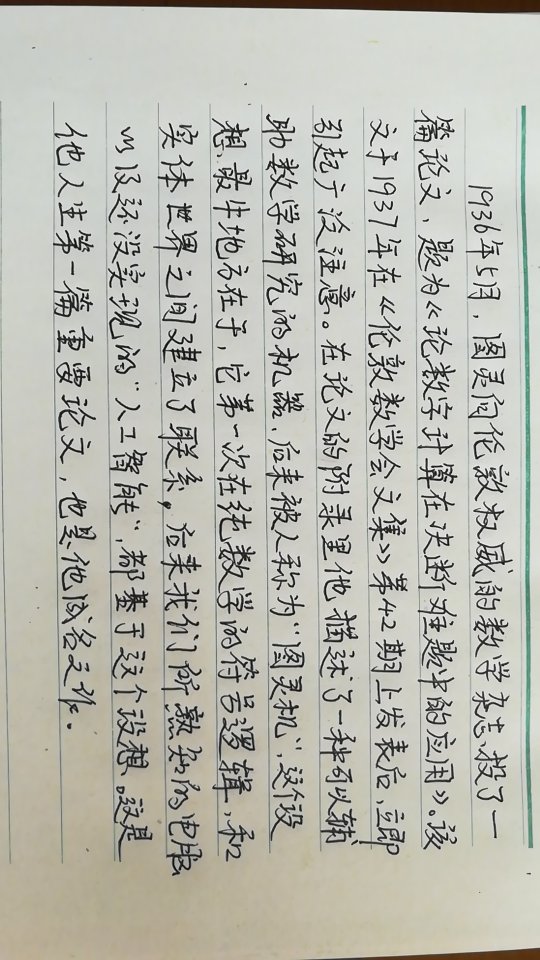 1936年5月，图灵向伦敦权威的数学杂志投了一
篇论文，题为《论数字计算在决断难题中的应用》。该
文于1937年在《伦敦数学会文集》第42期上发表后，立即
引起广泛注意。在论文的附录里他描述了一种可以辅
助数学研究的机器，后来被人称为“图灵机”，这个设
想最牛地方在于，它第一次在纯数学的符号逻辑，和
实体世界之间建立了联系。后来我们所熟知的电脑
以及还没实现的“人工智能”，都基于这个设想。这是
他人生第一篇重要论文，也是他成名之作。